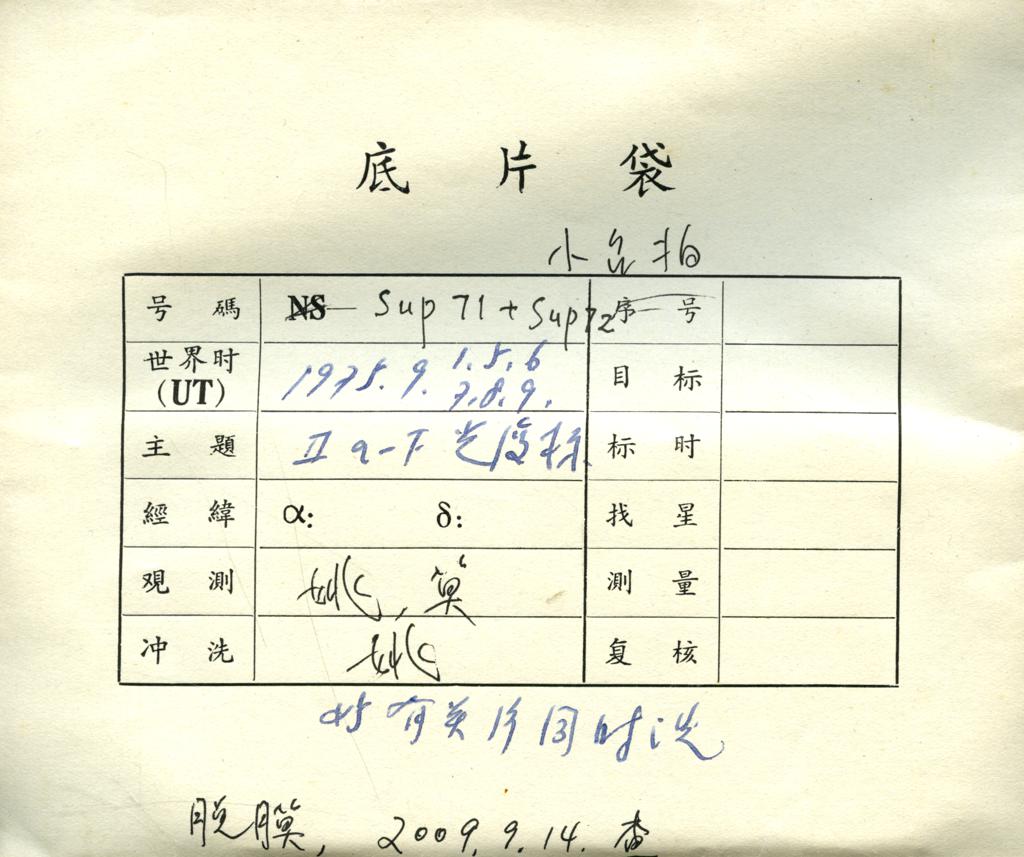 底片袋
小台拍
号碼 NS Sup 71 + Sup 72 序号
世界时 (UT) 1975.9. 1.5.6 7.8.9. 目标
主題 IIa-F 光度标 标时
經緯 α: δ: 找星
观測 姚, 測量
冲洗 姚 复核
与有关片同时洗
脱膜, 2009.9.14. 查